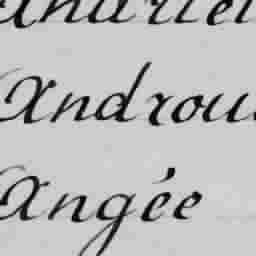 Androu
Angée